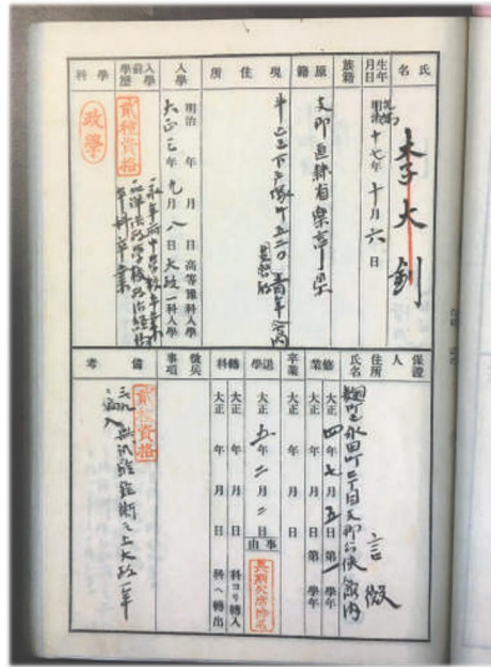 氏名
李大釗
生年月日
光緒
明治十七年十月六日
族籍
原籍
支那直隷省樂亭縣
現住所
牛込 下戸塚町五二〇 青年會内
入學
明治 年 月 日 高等豫科入學
大正三年九月八日 大政一科入學
入前學歷
貳種資格
永平府中學校卒業
北洋法政學校政治經濟
本科卒業
學科
政學
保證人
住所
氏名
麹町區永田町二丁目支那公使館内
言微
修業
大正四年七月五日第一學年
大正 年 月 日第 學年
卒業
大正 年 月 日
退學
大正五年二月二日
事由
長期欠席除名
轉科
大正 年 月 日 科ヨリ轉入
大正 年 月 日 科ヘ轉出
徵兵事項
備考
貳種資格
無試驗銓衡之上大政一年
入